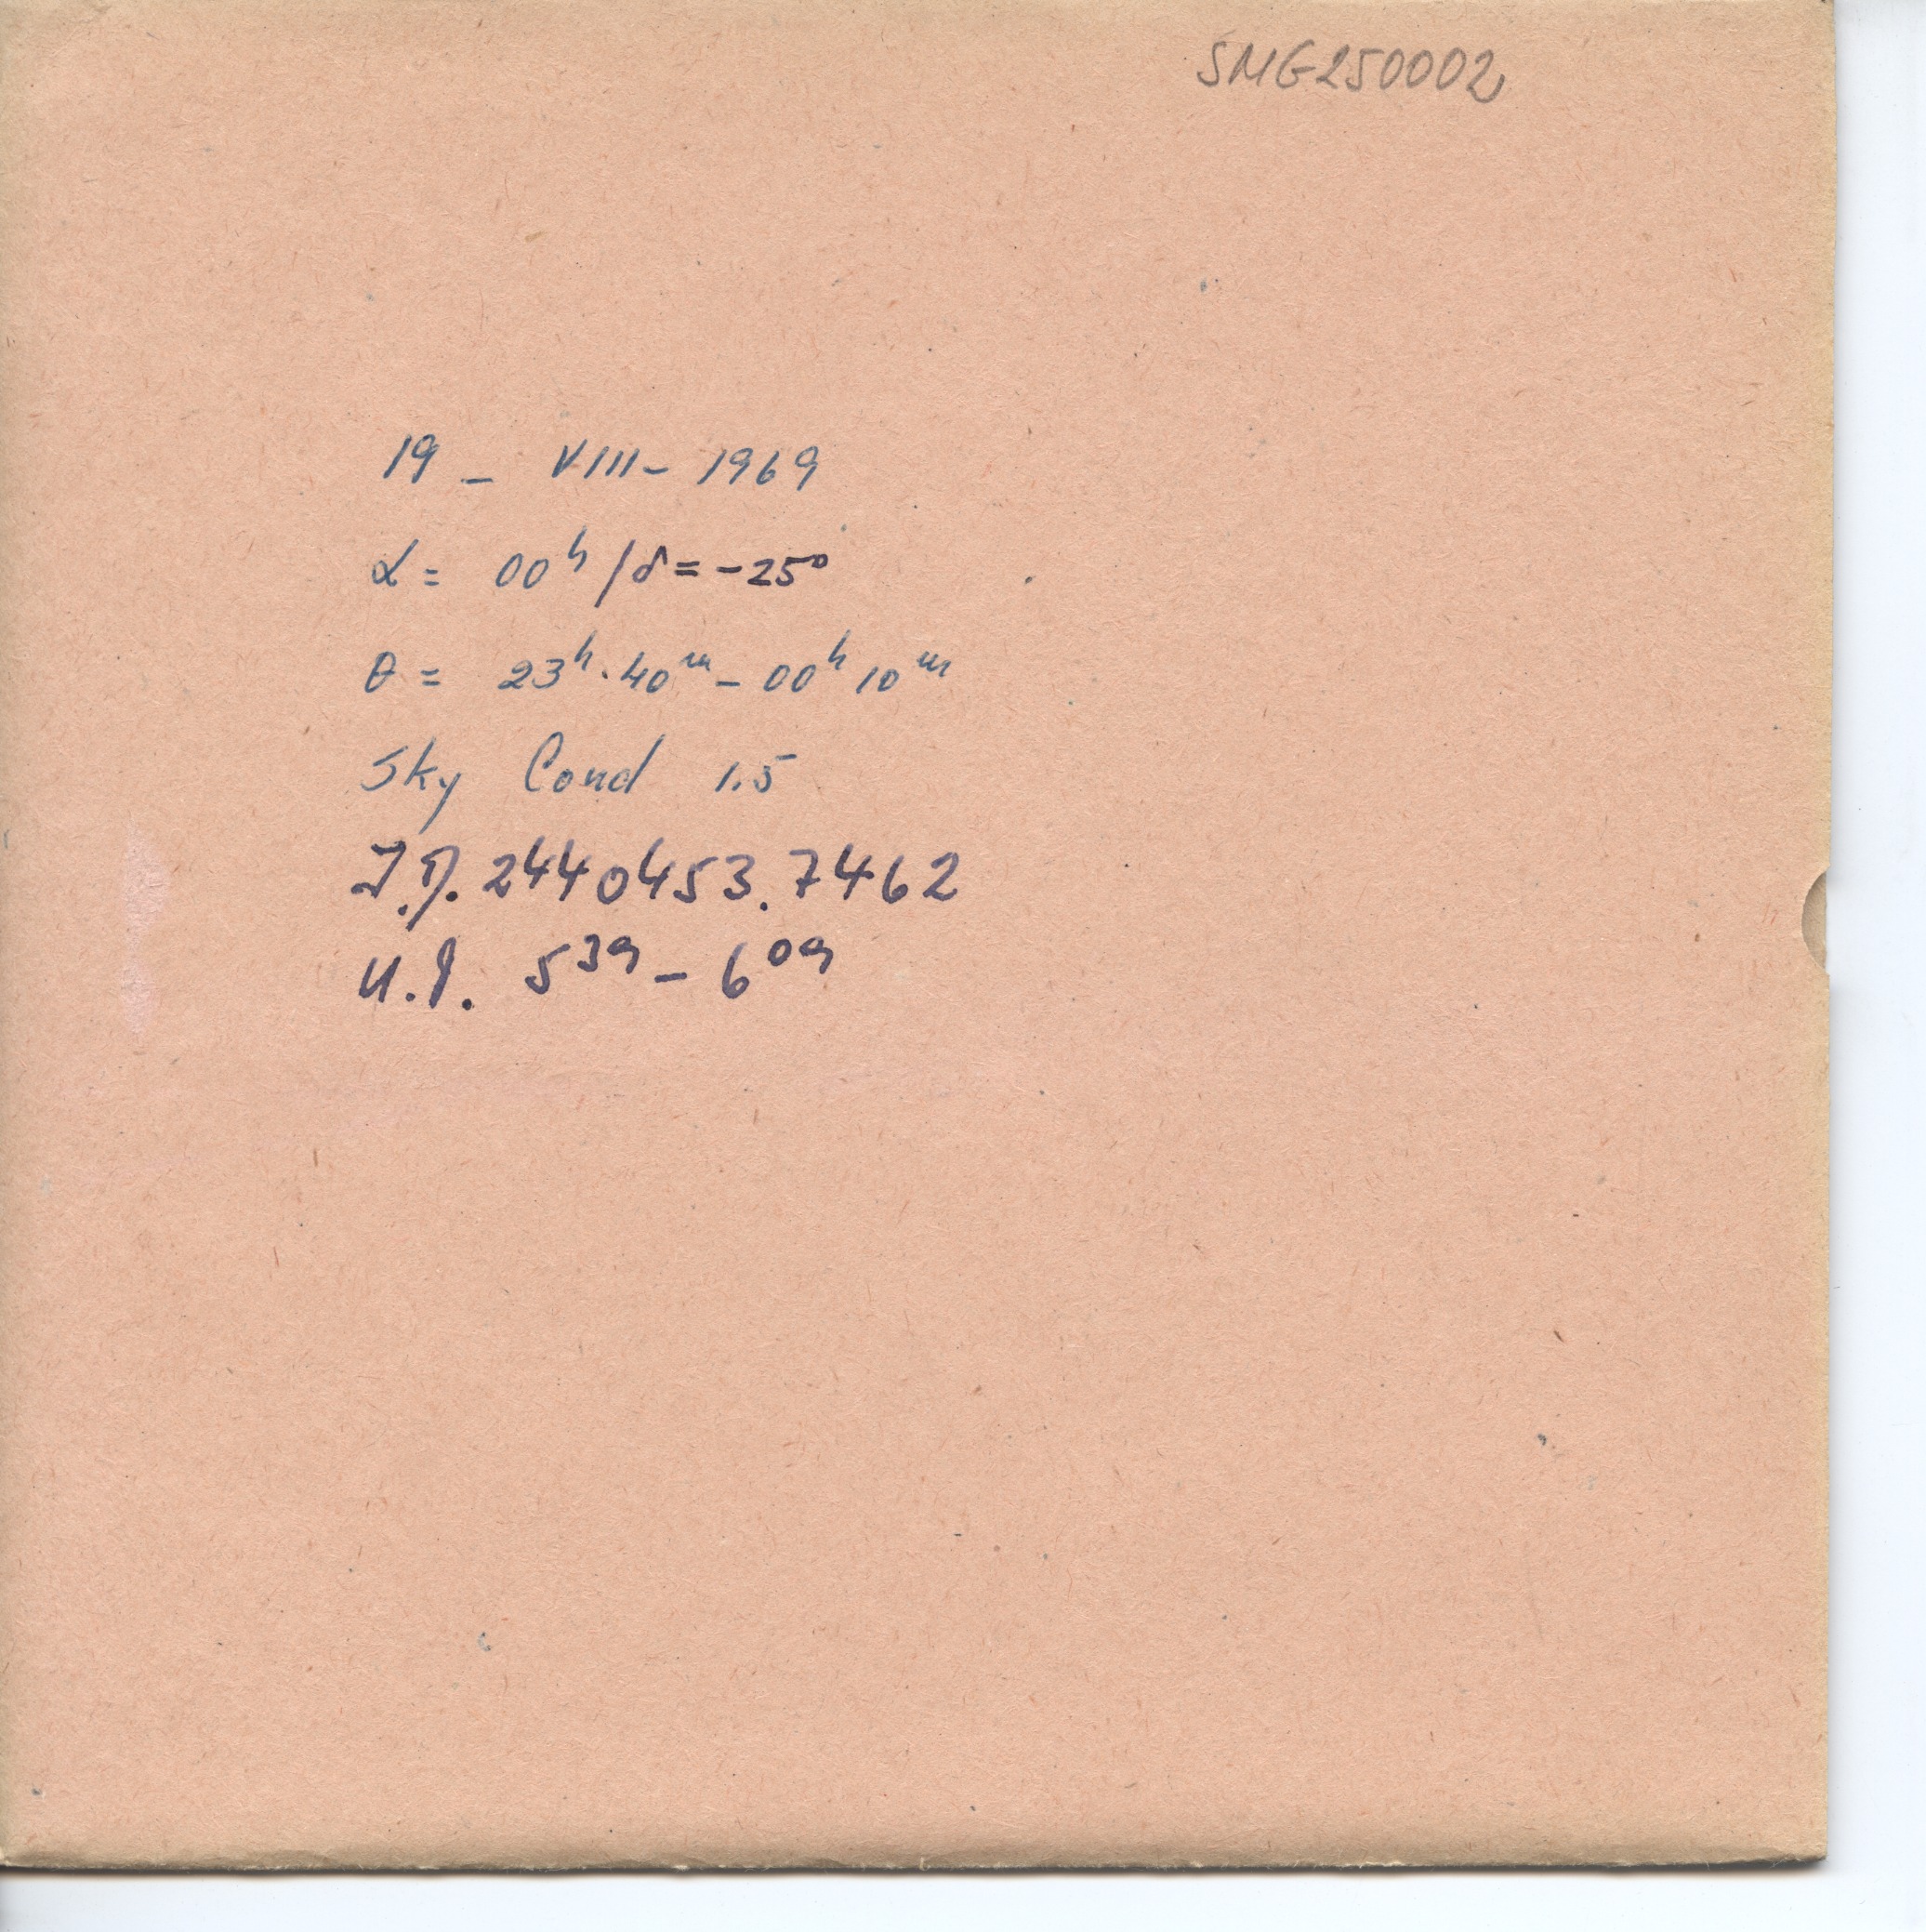 SMG250002
19 - VIII - 1969
α = 00ʰ / δ = -25°
θ = 23ʰ.40ᵐ - 00ʰ 10ᵐ
Sky Cond 1.5
J.D. 2440453.7462
U.T. 5³⁹ - 6⁰⁹